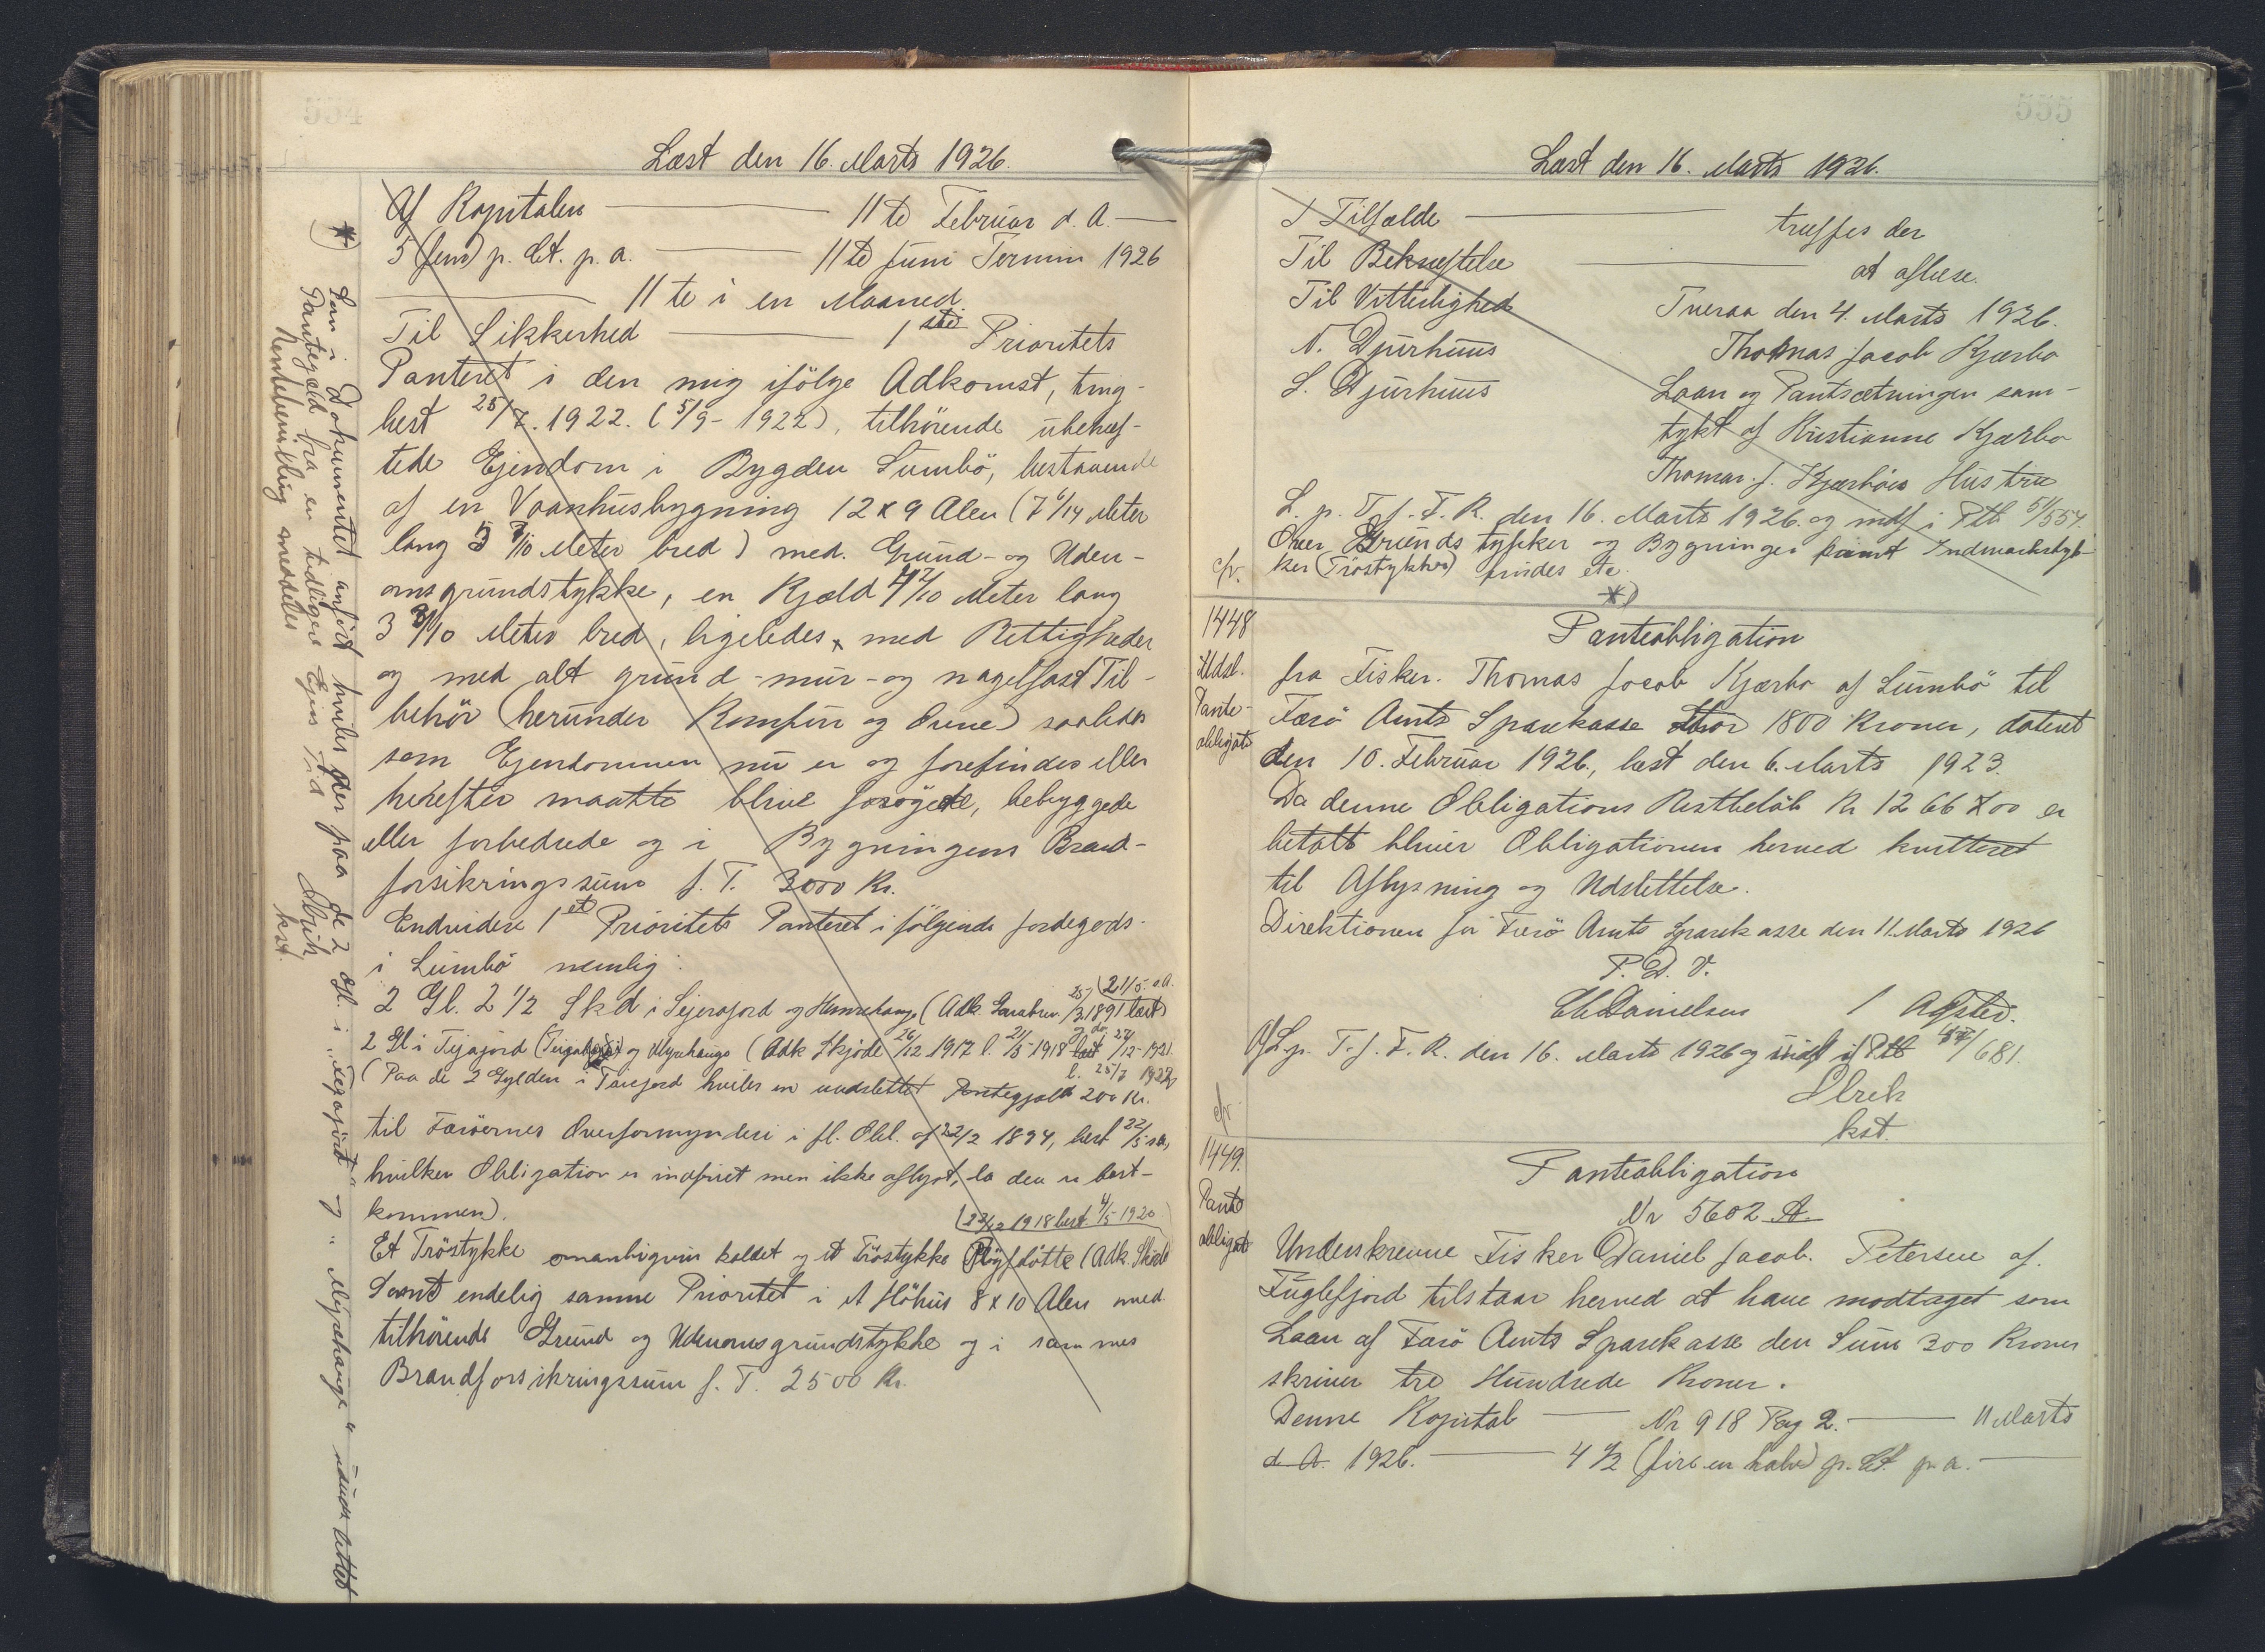 554
Læst den 16. Marts 1926.
Af Kapitalen — 11te Februar d. A. —
5 (fem) p. Ct. p. a. — 11te Juni Termin 1926
— 11te i en Maaned.
Til Sikkerhed — 1ste Prioritets
Panteret i den mig ifölge Adkomst, ting-
læst 25/7. 1922. (5/9 - 1922), tilhörende übehæf-
tede Ejendom i Bygden Sumbö, bestaaende
af en Vaanhusbygning 12 x 9 Alen (7 6/14 Meter
lang 5 7/10 Meter bred) med. Grund- og Uden-
omsgrundstykke, en Kjæld 4 7/10 Meter lang
3 3/10 Meter bred, ligeledes med Rettigheder
og med alt grund-mur-og nagelfast Til-
behör (herunder Komfur og Ovne) saaledes
som Ejendommen nu er og forefindes eller
herefter maatte blive forögede, bebyggede
eller forbedrede og i Bygningens Brand-
forsikringssum f. T. 3000 Kr.
Endvidere 1et Prioritets Panteret i fölgende Jordegods-
i Sumbö nemlig:
(21/5. s.A.
2 Gl. 2 1/2 Skd i Lejerafjord og Hamrehauge (Adk. Gavebrev. 25/3 1891 læst)
2 Gl i Tejafjord og Myrehauge (Adk Skjöde 26/12 1917 l. 21/5 1918 og do 27/12 - 1921.
l. 25/7 1922)
(Paa de 2 Gylden i Tarefjord hviler en uudslettet Pantegjæld 200 Kr.
til Færöernes Overformynderi i fl. Obl. af 22/2 1894, læst 22/5 s.a.,
hvilken Obligation er indfriet men ikke aflyst, da den er bort-
kommen).
(23/12 1918 læst 4/5 1920)
Et Tröstykke omanhigvin kaldet og et Tröstykke (Adk. Skjöde
Samt endelig samme Prioritet i et Höhus 8 x 10 Alen med
tilhörende Grund og Udenomsgrundstykke og i sammes
Brandforsikringssum f. T. 2500 Kr.
*) Som i Dokumentet anfört hviler der paa de 2 Gl. i "Tejafjörd" og "Myrehauge" uudslettet
Pantegjæld fra en tidligere Ejers Tid
Rentebemidling meddeles
Ulrich
kst.
555
Læst den 16. Marts 1926.
I Tilfælde — træffes der
Til Bekræftelse — at aflæse.
Til Vitterlighed Tveraa den 4. Marts 1926.
N. Djurhuus Thomas Jacob Kjærbo
S. Djurhuus Laan og Pantsætningen sam-
tykt af Kristianne Kjærbo
Thomas J. Kjærboes Hustru
L. p. T. f. F. R. den 16. Marts 1926. og indf i Ptb 51/554.
Over Grundstykker og Bygninger samt Indmarkstyk-
cfr. ker (Tröstykker) findes etc.
*)
1448 Panteobligation
Udsl. Pante-obligat. fra Fisker. Thomas Jacob Kjærbo af Sumbö til
Færö Amts Sparekasse stor 1800 Kroner, dateret
den 10. Februar 1926., læst den 6. Marts 1923.
Da denne Obligations Restbelöb Kr 1266 00 er
betalt bliver Obligationen herved kvitteret
til Aflysning og Udslettelse.
Direktionen for Færö Amts Sparekasse den 11. Marts 1926
P. D. V.
Danielsen
Af L. p. T. f. F. R. den 16. Marts 1926 og indf i Ptb /681.
cfr. Ulrich
kst.
1449. Panteobligation
Pante obligat Nr 5602 A
Underskrevne Fisker Daniel Jacob. Petersen af.
Fuglefjord tilstaar herved at have modtaget som
Laan af Færö Amts Sparekasse den Sum 300 Kroner
skriver tre Hundrede Kroner.
Denne Kapital — Nr 918 Pag 2. — 11 Marts
d. A. 1926. — 4 1/2 (fire en halv) p. Ct. p. a. —